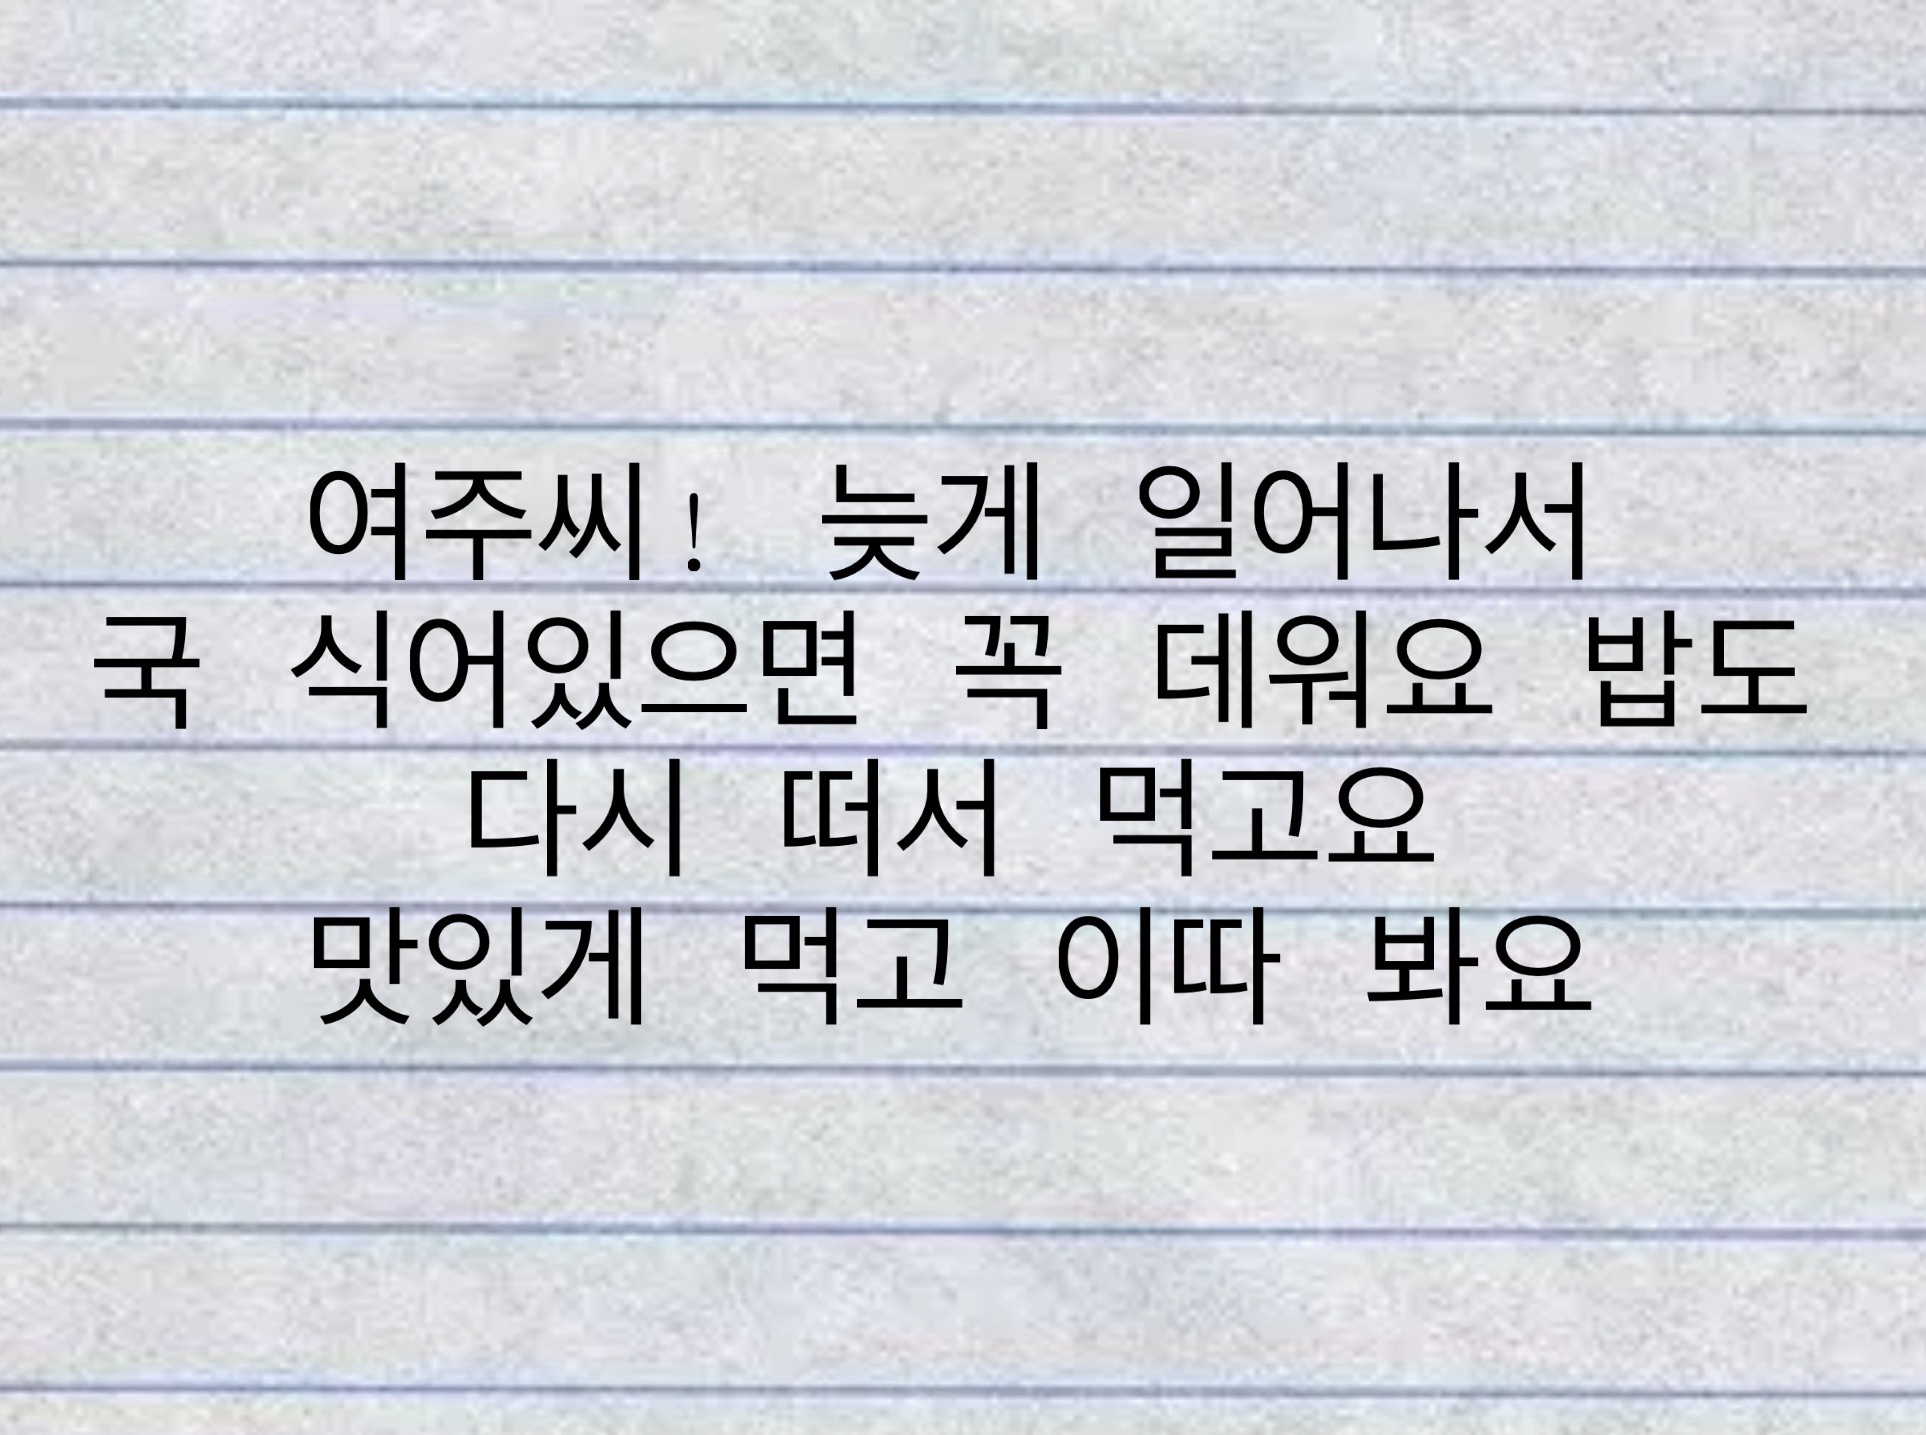 여주씨! 늦게 일어나서
국 식어있으면 꼭 데워요 밥도
다시 떠서 먹고요
맛있게 먹고 이따 봐요